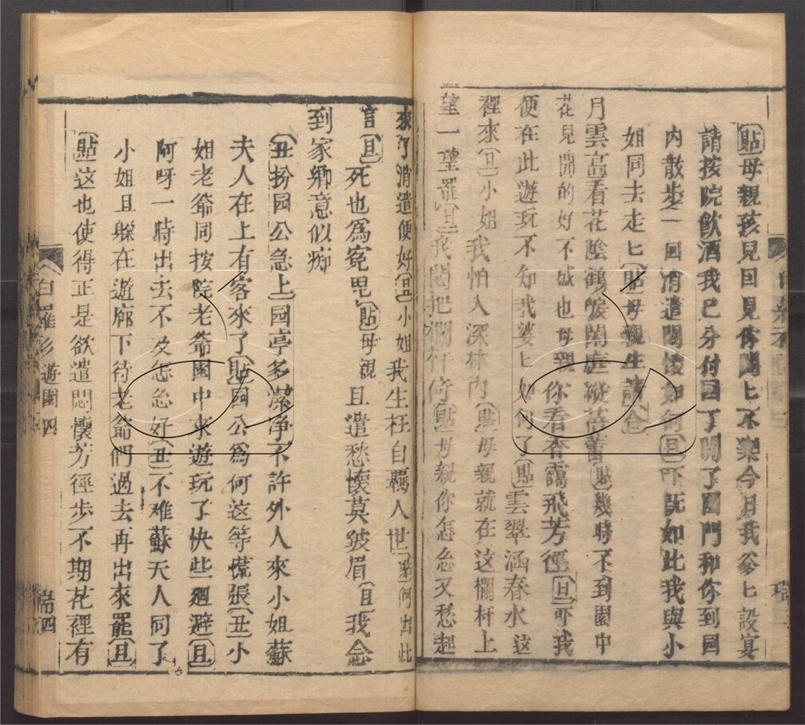 貼母親孩兒回見你悶匕不樂今日我爹匕設宴
請按院飲酒我已分付园丁開了园門和你到园
内散步一回消遣悶懷如何旦吓既如此我與小
姐同去走匕貼母親生請合
月雲高看花陰鶴唳閑庭縱蓓蕾貼幾時不到園中
花見開的好不盛也母親你看杳靄飛芳徑旦吓我
便在此遊玩不知我婆匕如何了貼雲翠涵春水这
裡來旦小姐我怕入深林内貼母親就在这欄杆上
望一望罷旦我悶把欄杆倚貼母親你怎怎又愁起
來了消遣便好旦小姐我生枉自羈人世貼何出此
言旦死也為冤鬼貼母親且遣愁懷莫皱眉旦我念
到家鄉意似痴
丑扮园公急上园亭多潔净不許外人來小姐蘇
夫人在上有客來了貼园公為何这等慌張丑小
姐老爺同按院老爺園中來遊玩了快些廻避旦
阿呀一時出去不及怎怎好丑不难蘇夫人同了
小姐且躲在遊廊下待老爺們過去再出來罷旦
貼这也使得正是欲遣悶懷芳徑步不期花裡有
白羅衫 遊園 四